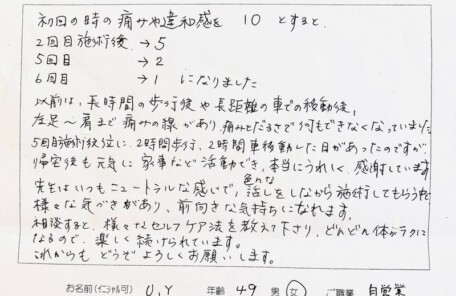 初回の時の痛みや違和感を 10 とすると
2回目施術後 → 5
5回目 → 2
6回目 → 1 になりました
以前は、長時間の歩行後や長距離の車での移動後、
左足〜肩まで痛みの線があり、痛みとだるさで何もできなくなっていました
5回目施術後位に、2時間歩行、2時間車移動した日があったのですが、
帰宅後も元気に家事など活動でき、本当にうれしく、感謝しています
先生はいつもニュートラルな感じで、色んな話しをしながら施術してもらう中で
様々な気づきがあり、前向きな気持ちになれます。
相談すると、様々なセルフケア法を教えて下さり、どんどん体がラクに
なるので、楽しく続けられています。
これからもどうぞよろしくお願いします。
お名前(イニシャル可) U.Y 年齢 49 男 女 ご職業 自営業